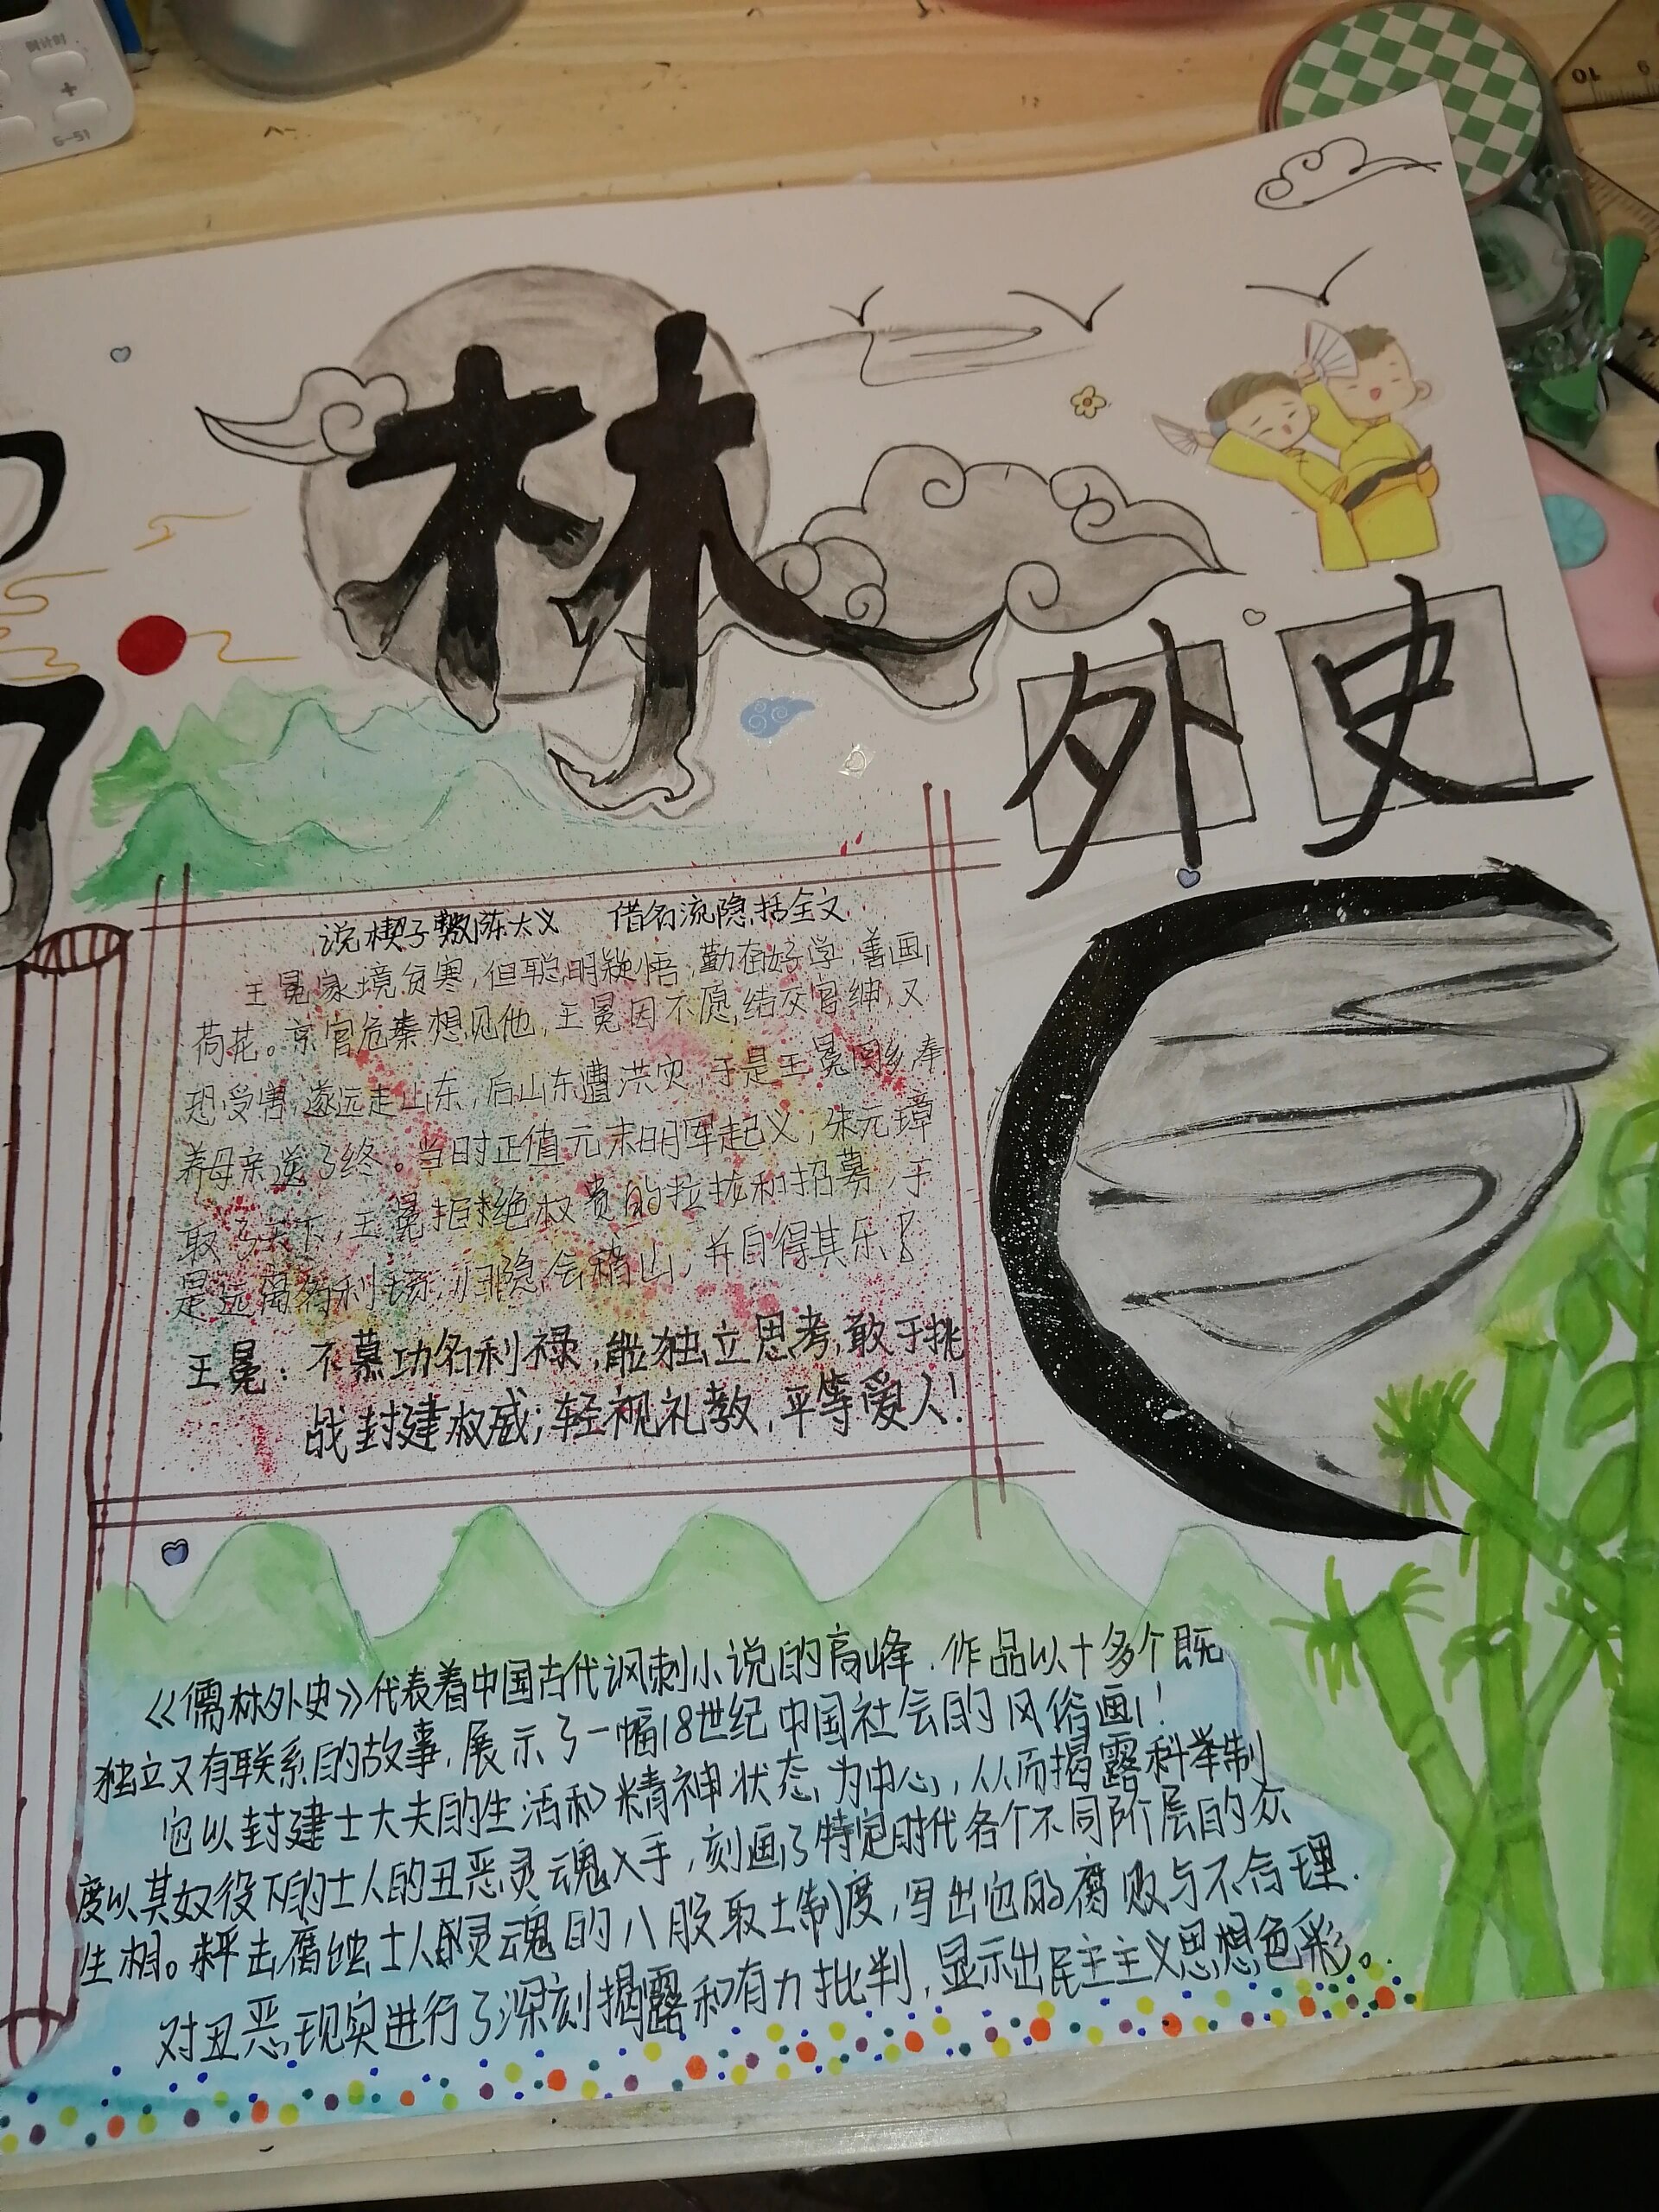 倒计时
+
G-51
10
9
林
外史
说楔子敷陈大义 借名流隐括全文
王冕家境贫寒,但聪明颖悟,勤奋好学,善画
荷花。京官危素想见他,王冕因不愿结交官绅,又
恐受害,遂远走山东,后山东遭洪灾,于是王冕回乡奉
养母亲送了终。当时正值元末明军起义,朱元璋
取了天下,王冕拒绝权贵的拉拢和招募,于
是远离名利场,归隐会稽山,并自得其乐!
王冕:不慕功名利禄,能独立思考,敢于挑
战封建权威;轻视礼教,平等爱人!
《儒林外史》代表着中国古代讽刺小说的高峰.作品以十多个既
独立又有联系的故事,展示了一幅18世纪中国社会的风俗画!
它以封建士大夫的生活和精神状态为中心,从而揭露科举制
度以其奴役下的士人的丑恶灵魂入手,刻画了特定时代各个不同阶层的众
生相。抨击腐蚀士人灵魂的八股取士制度,写出它的腐败与不合理.
对丑恶现实进行了深刻揭露和有力批判,显示出民主主义思想色彩。